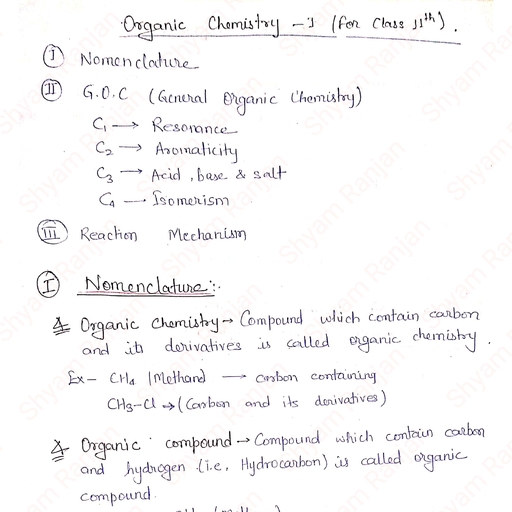 Organic Chemistry - I (for Class 11th).
I Nomenclature
II G.O.C (General Organic Chemistry)
C1 → Resonance
C2 → Aromaticity
C3 → Acid, base & salt
C4 — Isomerism
III Reaction Mechanism
I Nomenclature:-
Organic Chemistry → Compound which contain carbon
and its derivatives is called organic chemistry.
Ex- CH4 (Methane) → carbon containing
CH3-Cl → (Carbon and its derivatives)
Organic compound → Compound which contain carbon
and hydrogen (i.e, Hydrocarbon) is called organic
compound.
Shyam Ranjan